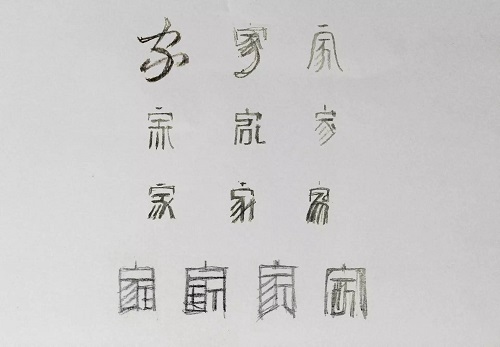 家家家
家家家
家家家
家家家家